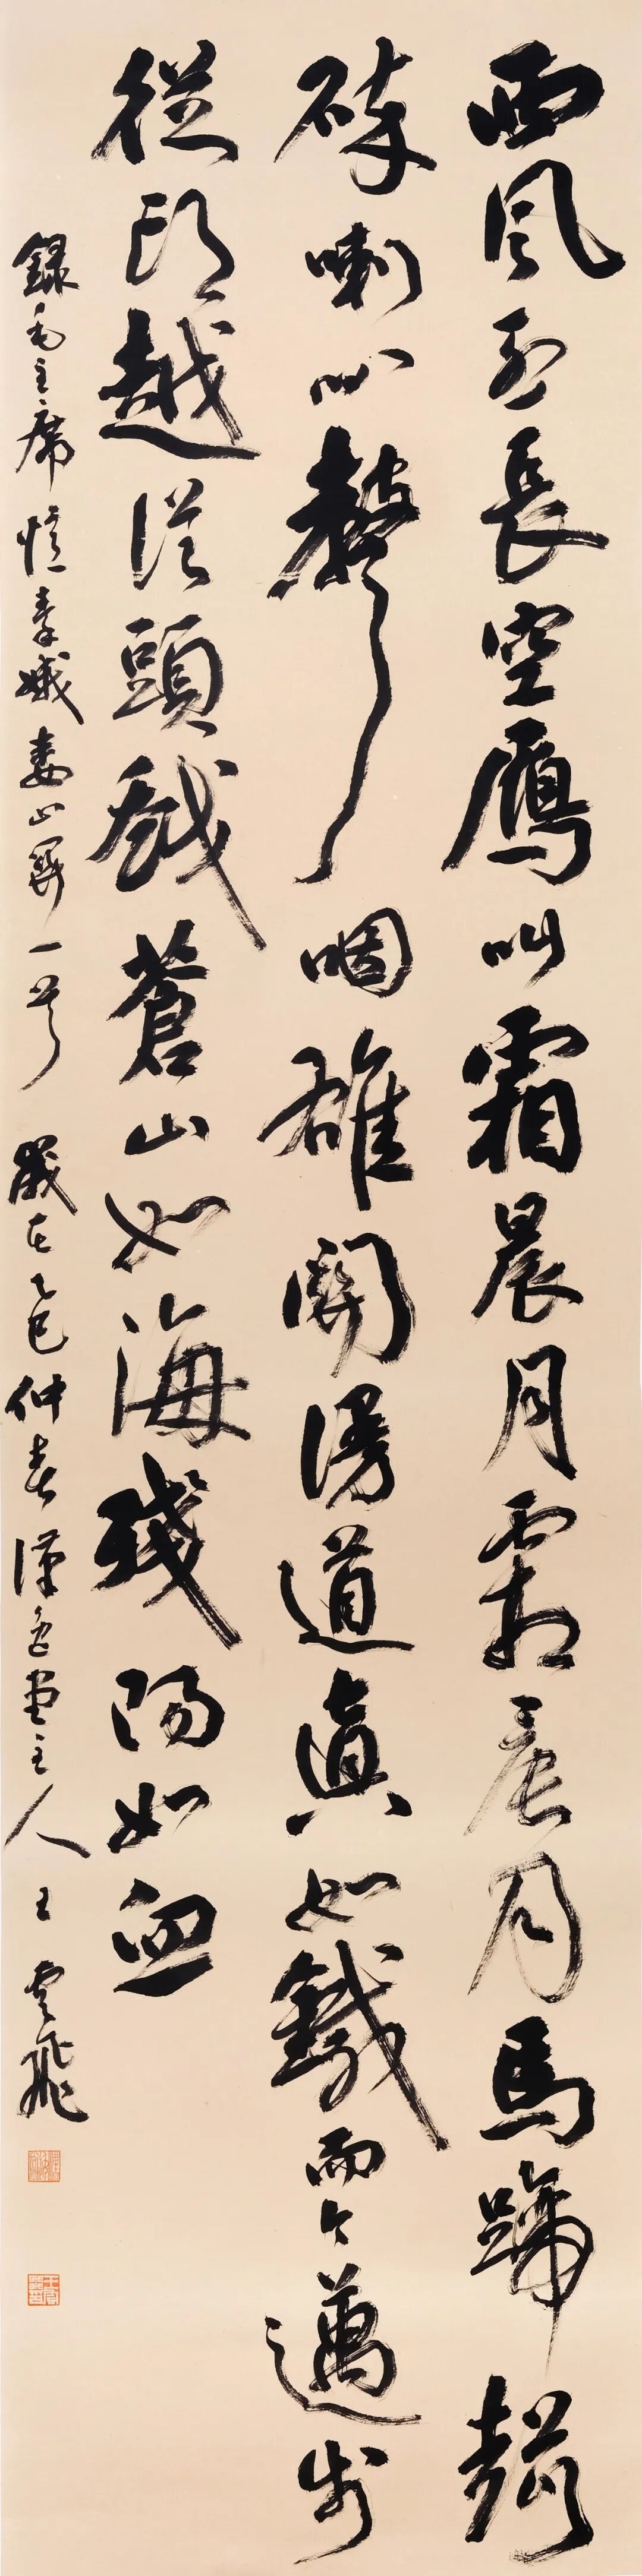 西風烈長空鴈叫霜晨月霜晨月馬蹄聲
碎喇叭聲咽雄關漫道眞如鐵而今邁步
從頭越從頭越蒼山如海殘陽如血
録毛主席憶秦娥婁山關一首 歲在乙巳仲春漢堂主人王雲飛